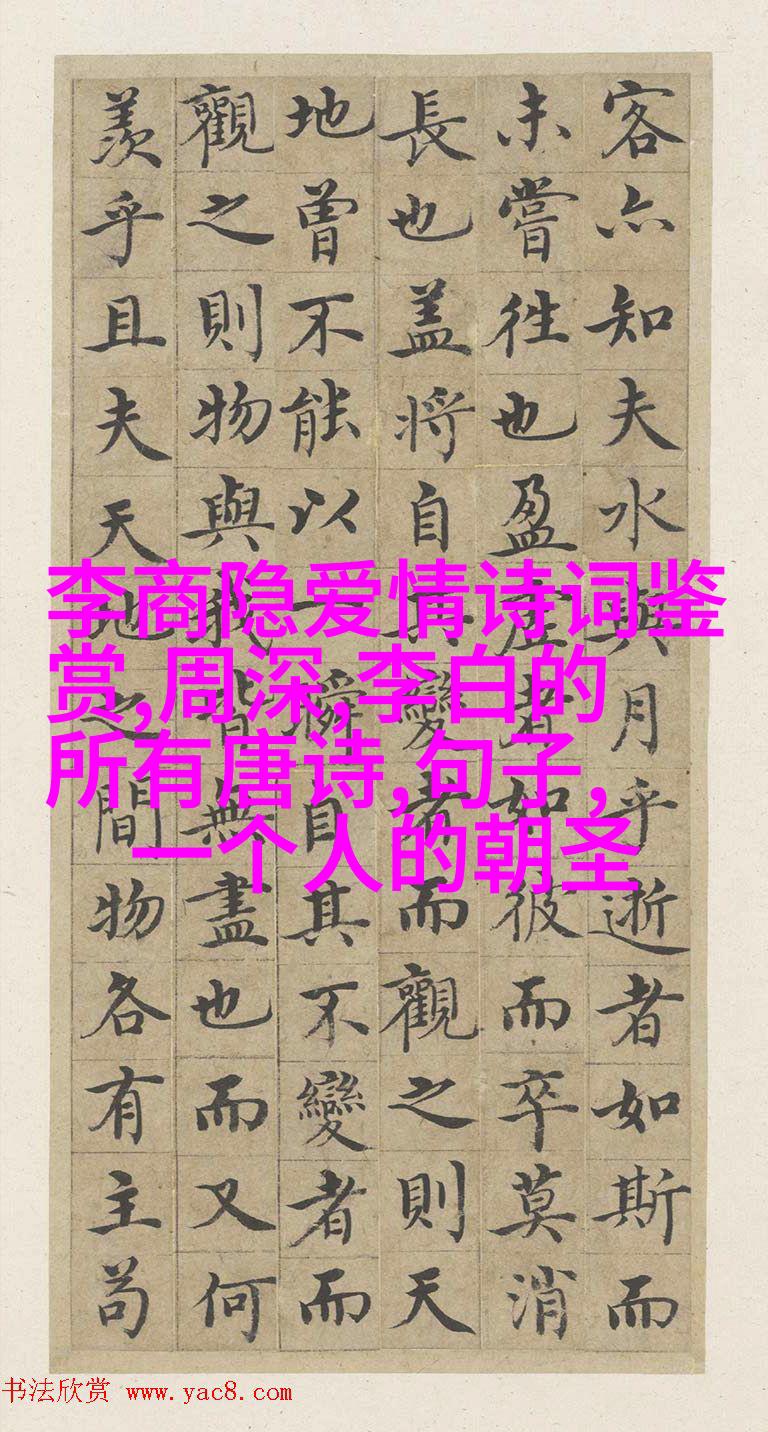 客亦知夫水與月乎逝者如斯而
未嘗往也盈虛者如彼而卒莫消
長也盖將自其變者而觀之則天
地曾不能以一瞬自其不變者而
觀之則物與我皆無盡也而又何
羨乎且夫天地之間物各有主苟
李商隐爱情诗词鉴
赏,周深,李白的
所有唐诗,句子,
一个人的朝圣
书法欣赏 www.yac8.com